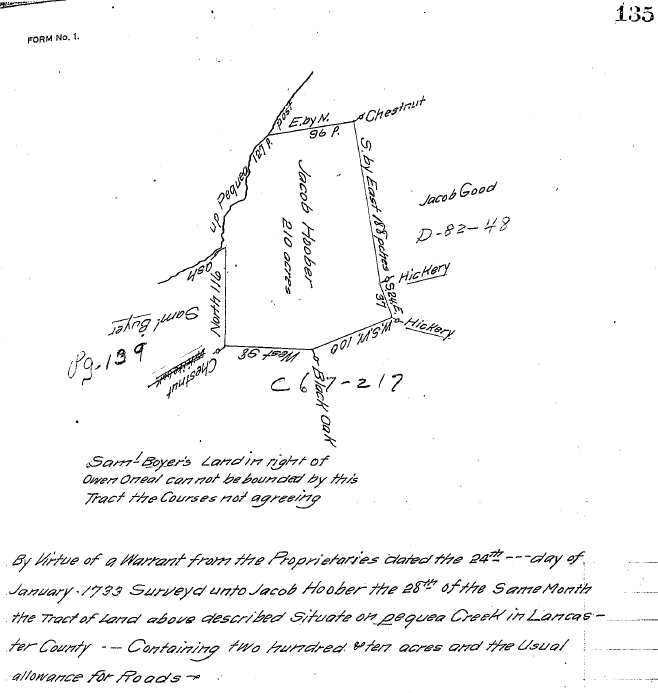 135
FORM No. 1.
Post
E. by N.
96 P.
Chestnut
up Pequea 127 P.
S. by East 188 pches
Jacob Hoober
210 acres
Jacob Good
D-82-48
Hickery
S 24 E.
37
Hickery
ash
North 116
Sam! Buyer
Pg-139
Chestnut
West 98
W.S.W. 100
Black Oak
C 67-217
Sam! Boyer's Land in right of
Owen Oneal cannot be bounded by this
Tract the Courses not agreeing
By Virtue of a Warrant from the Proprietaries dated the 24th --- day of
January. 1733 Surveyd unto Jacob Hoober the 28th of the Same Month
the Tract of Land above described Situate on pequea Creek in Lancas-
ter County -- Containing two hundred & ten acres and the Usual
allowance for Roads